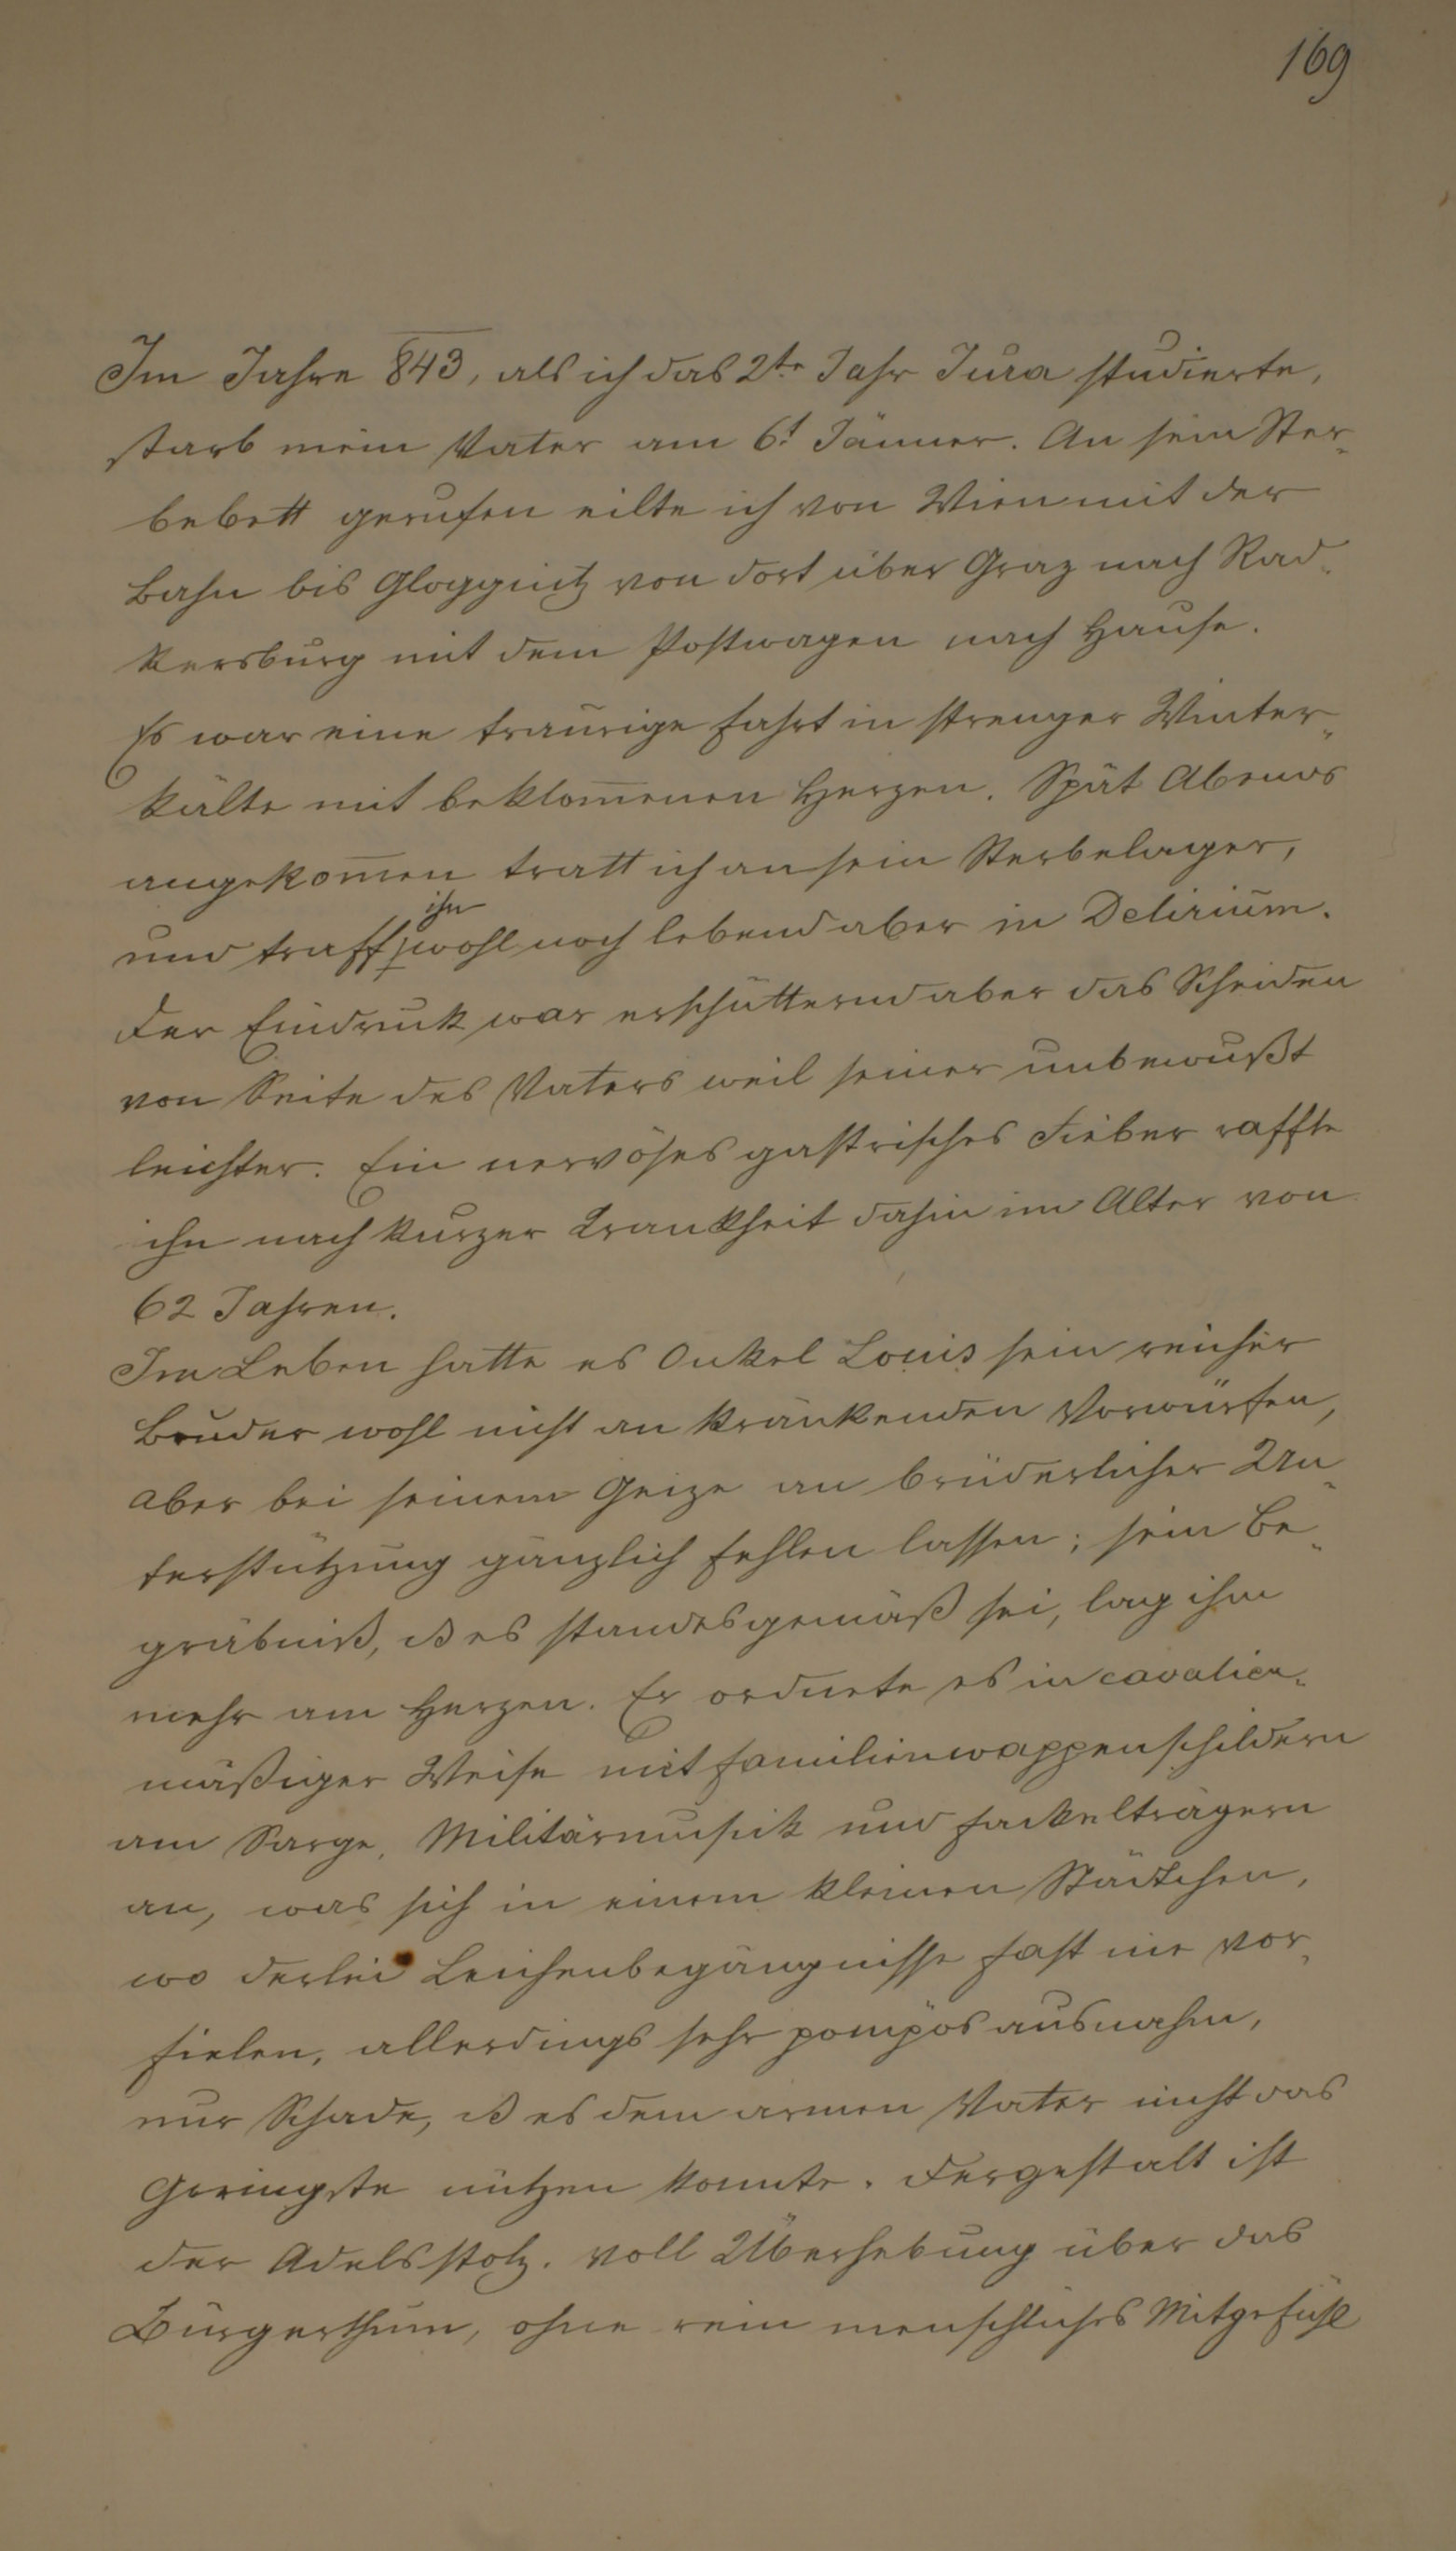 169
Im Jahre 843, als ich das 2te Jahr Jura studierte,
starb mein Vater am 6t Jänner. An sein Ster-
bebett gerufen eilte ich von Wien mit der
Bahn bis Gloggnitz von dort über Graz nach Rad-
kersburg mit dem Postwagen nach Hause.
Es war eine traurige Fahrt in strenger Winter-
kälte mit beklom̅enen Herzen. Spät Abends
angekom̅en tratt ich an sein Sterbelager,
ihn
und traff wohl noch lebend aber in Delirium.
Der Eindruk war erschütternd aber das Scheiden
von Seite des Vaters weil seiner unbewußt
leichter. Ein nervöses gastrisches Fieber raffte
ihn nach kurzer Krankheit dahin im Alter von
62 Jahren.
Im Leben hatte es Onkel Louis sein reicher
Bruder wohl nicht an kränkenden Vorwürfen,
aber bei seinem Geize an brüderlicher Un-
terstützung gänzlich fehlen lassen; sein Be-
gräbniß, ß es standesgemäß sei, lag ihm
mehr am Herzen. Er ordnete es in cavalier-
mäßiger Weise mit Familienwappenschildern
am Sarge, Militärmusik und Fackelträgern
an, was sich in einem kleinen Städtchen,
wo derlei Leichenbegängnisse fast nie vor-
fielen, allerdings sehr pompös ausnahm,
nur Schade, ß es dem armen Vater nicht das
Geringste nützen konnte. Dergestalt ist
der Adelsstolz. Voll Überhebung über das
Bürgerthum, ohne rein menschliches Mitgefühl